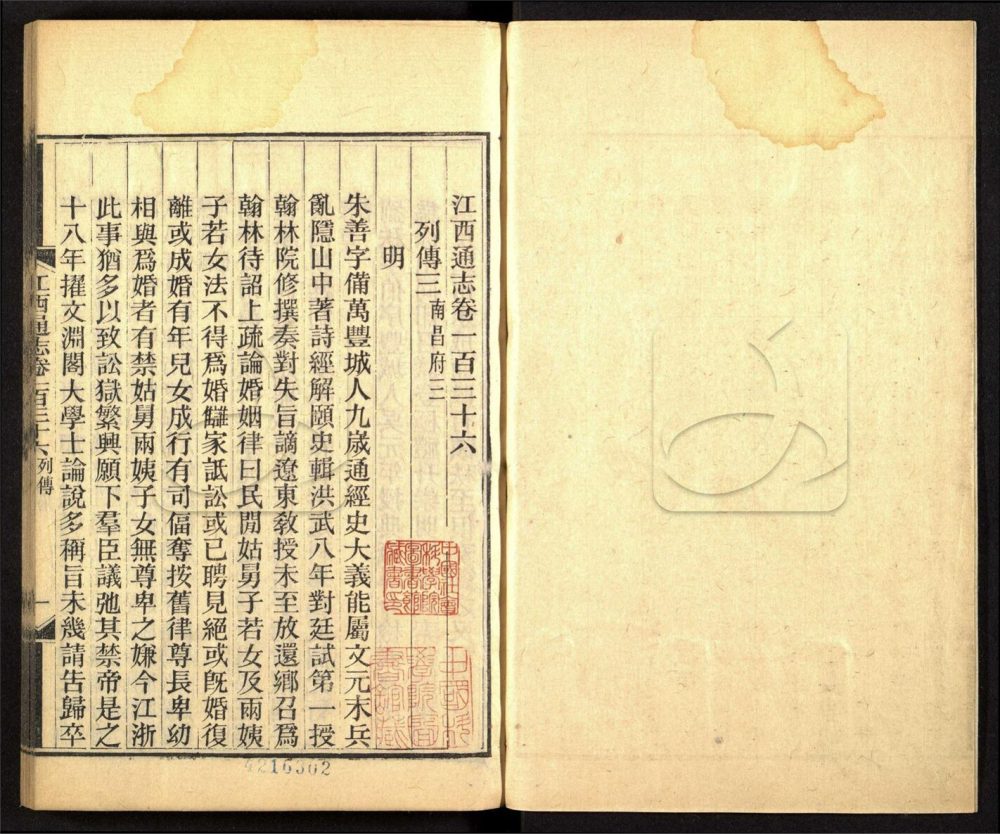 江西通志卷一百三十六
列傳三南昌府三
明
朱善字備萬豐城人九歲通經史大義能屬文元末兵
亂隱山中著詩經解頤史輯洪武八年對廷試第一授
翰林院修撰奏對失旨謫遼東敎授未至放還鄉召爲
翰林待詔上疏論婚姻律曰民閒姑舅子若女及兩姨
子若女法不得爲婚讎家詆訟或已聘見絕或旣婚復
離或成婚有年兒女成行有司偪奪按舊律尊長卑幼
相與爲婚者有禁姑舅兩姨子女無尊卑之嫌今江浙
此事猶多以致訟獄繁興願下羣臣議弛其禁帝是之
十八年擢文淵閣大學士論說多稱旨未幾請告歸卒
江西通志卷一百三十六 列傳 一
中國社會科學院圖書館藏書印
4216302